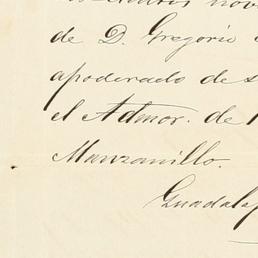 de D. Gregorio
apoderado de
el Admor. de
Manzanillo.